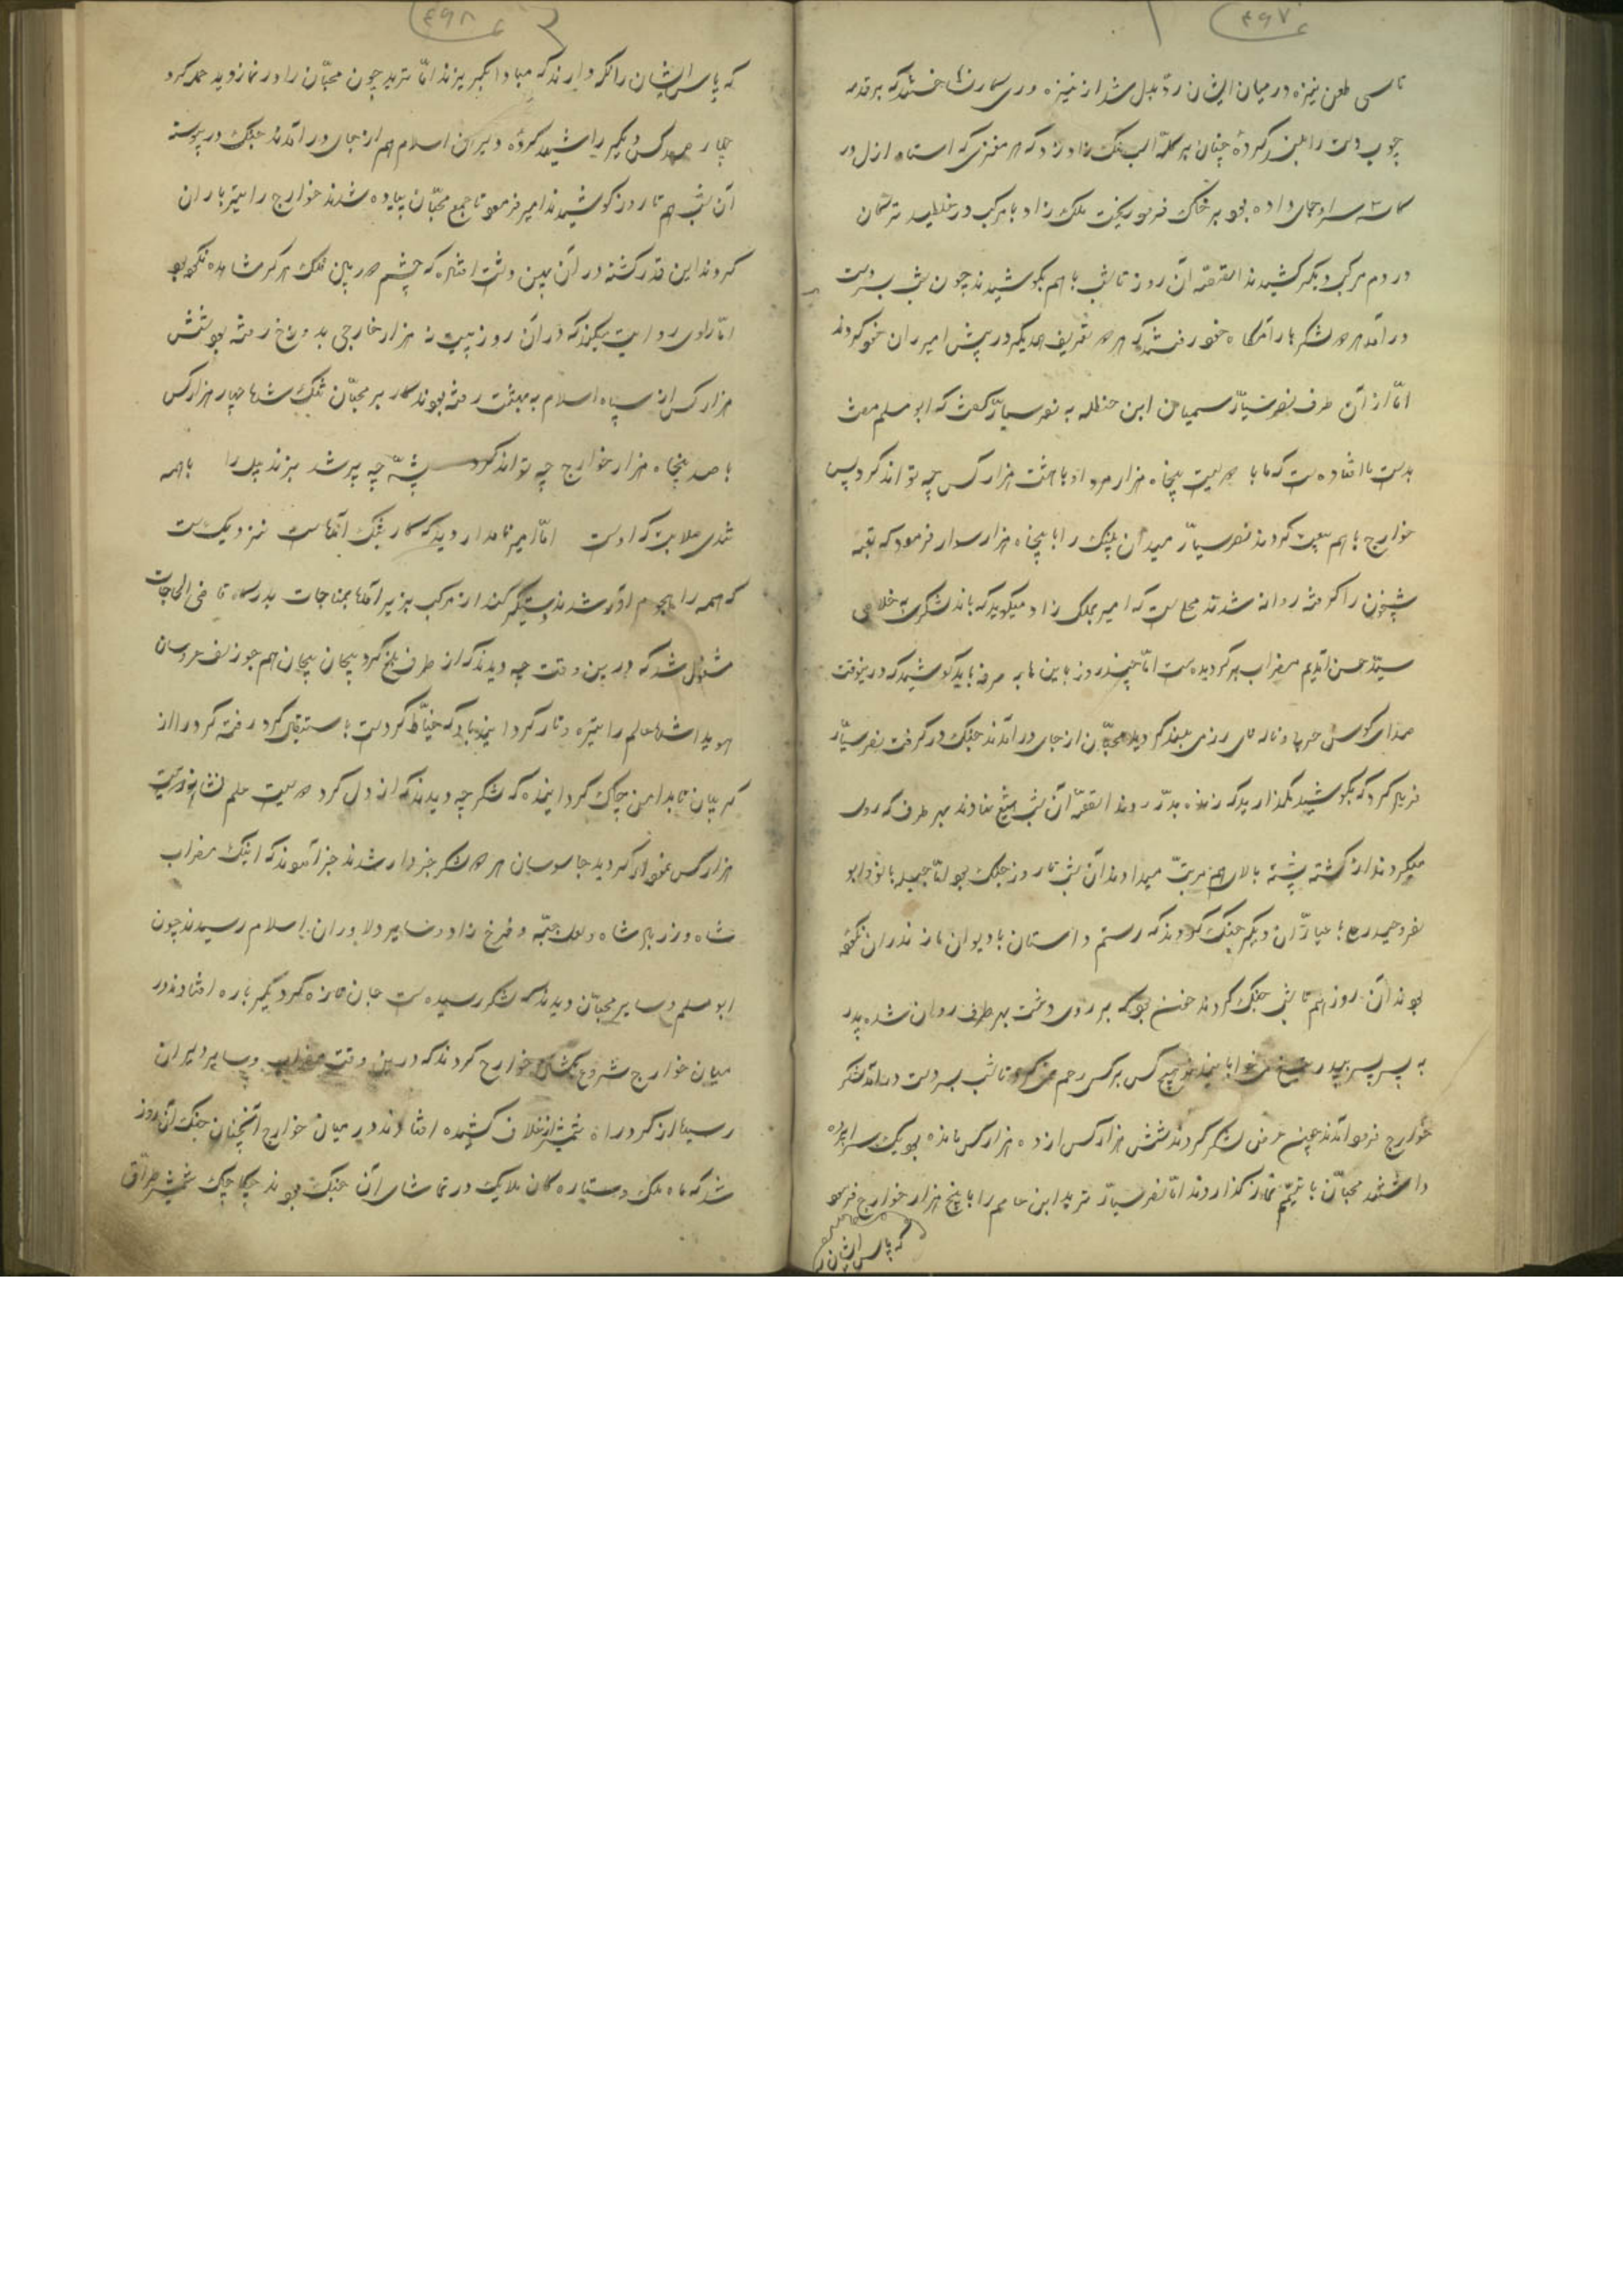 ۴۹۷
تا سی طعن نیزه در میان ایشان رد و بدل شد از نیزه
چوب دست را بلند کرده چنان بر کله آب ملک زاد زد که هر مغزی که استاد ازل در
کاسه سر او جای داده بود بر خاک فرو ریخت ملک زاد با مرکب در غلطید
در دم مرکب دیگر کشیدند القصه آن روز تا شب با هم بکوشیدند چون شب بر دست
در آمد هر دو لشکر بآرامگاه خود رفتند که هر دو تعریف همدیگر در پیش امیران خود کردند
اما از آن طرف نصر سیار سمیان ابن حنظله به نصر سیار گفت که ابو مسلم مفت
بدست ما افتاده است که ما با دویست پنجاه هزار مرد او با هشت هزار کس چه تواند کرد پس
خوارج با هم بیعت کردند نصر سیار میدان پلنگ را با پنجاه هزار سوار فرمود که
شبخون را گرفته روانه شدند محل است که امیر بملک زاد میگوید که باند لشکری به خلاصی
سید حسن آمدیم مضراب بر گردیده است اما چند روز باین ها به صرفه باید کوشید که در ینوقت
صدای کوس حربی و نای رزمی بلند گردید محبان از جای در آمدند جنگ در گرفت نصر سیار
فریاد کرد که بکوشید مگذارید که زنده بدر روند القصه آن شب تیغ نهادند بهر طرف که روی
میکردند از کشته پشته بالای هم مرتب میدادند آن شب تا روز جنگ بود اما
نفر و حیدر با عیاران دیگر جنگ کردند که رستم داستان با دیوان مازندران نکرده
بودند آن روز هم تا شب جنگ کردند خون بود که بر روی دشت بهر طرف روان شده پدر
به پسر پسر به پدر هیچ کس بر کس رحم نمی کرد تا شب بر دست در آمد لشکر
خوارج فرود آمدند چون عرض لشکر کردند شش هزار کس از ده هزار کس مانده بود یک سراپرده
داشتند محبان با تیمم نماز گذاردند اما نصر سیار تزید ابن حاتم را با پنج هزار خوارج فرمود
که پاس ایشان را
۴۹۸
که پاس ایشان را نگه دارند که مبادا بگریزند اما تزید چون محبان را در نماز دید حمله کرد
چهار صد کس دیگر را شهید کرده دلیران اسلام هم از جای در آمدند جنگ در پیوسته
آن شب هم تا روز کوشیدند امیر فرمود تا جمع محبان پیاده شدند خوارج را تیر باران
کردند این قدر کشته در آن پهن دشت افتاده که چشم دوربین فلک هرگز مشاهده نکرده بود
اما راوی روایت میکند که در آن روز بیست هزار خارجی بدوزخ رفته بود شش
هزار کس از سپاه اسلام به بهشت رفته بودند کار بر محبان تنگ شد اما چهار هزار کس
با صد پنجاه هزار خوارج چه تواند کرد پشه چه پر شد بزند پیل را با همه
تندی صلابت که اوست اما امیر نامدار دید که کار بتنگ آمده است نزدیک است
که همه را بهجوم آور شدند دستگیر کنند از مرکب بزیر آمد بمناجات بدرگاه قاضی الحاجات
مشغول شد که درین وقت چه دیدند که از طرف بلخ گرد پیچان پیچان هم چو زلف عروسان
هویدا شد عالم را تیره و تار گردانید باد که خیاط گردست باستقبال گرد رفته گرد را از
گریبان تا بدامن چاک گردانیده که لشکر چه دیدند که از دل گرد دویست علم نشانه دویست
هزار کس نمودار گردید جاسوسان هر دو لشکر خبردار شدند خبر آمدند که اینک مضراب
شاه و زریر شاه و لعل جبه و فرخ زاد و سایر دلاوران اسلام رسیدند چون
ابو مسلم و سایر محبان دیدند که لشکر رسیده است جان تازه کرد دیگر باره افتادند در
میان خوارج شروع بکشتن خوارج کردند که درین وقت مضراب و سایر دلیران
رسیدند از گرد راه شمشیر از غلاف کشیده افتادند در میان خوارج آنچنان جنگ آن روز
شد که ماه ملک و ستارگان ملایک در تماشای آن جنگ بودند چکاچک شمشیر طراق